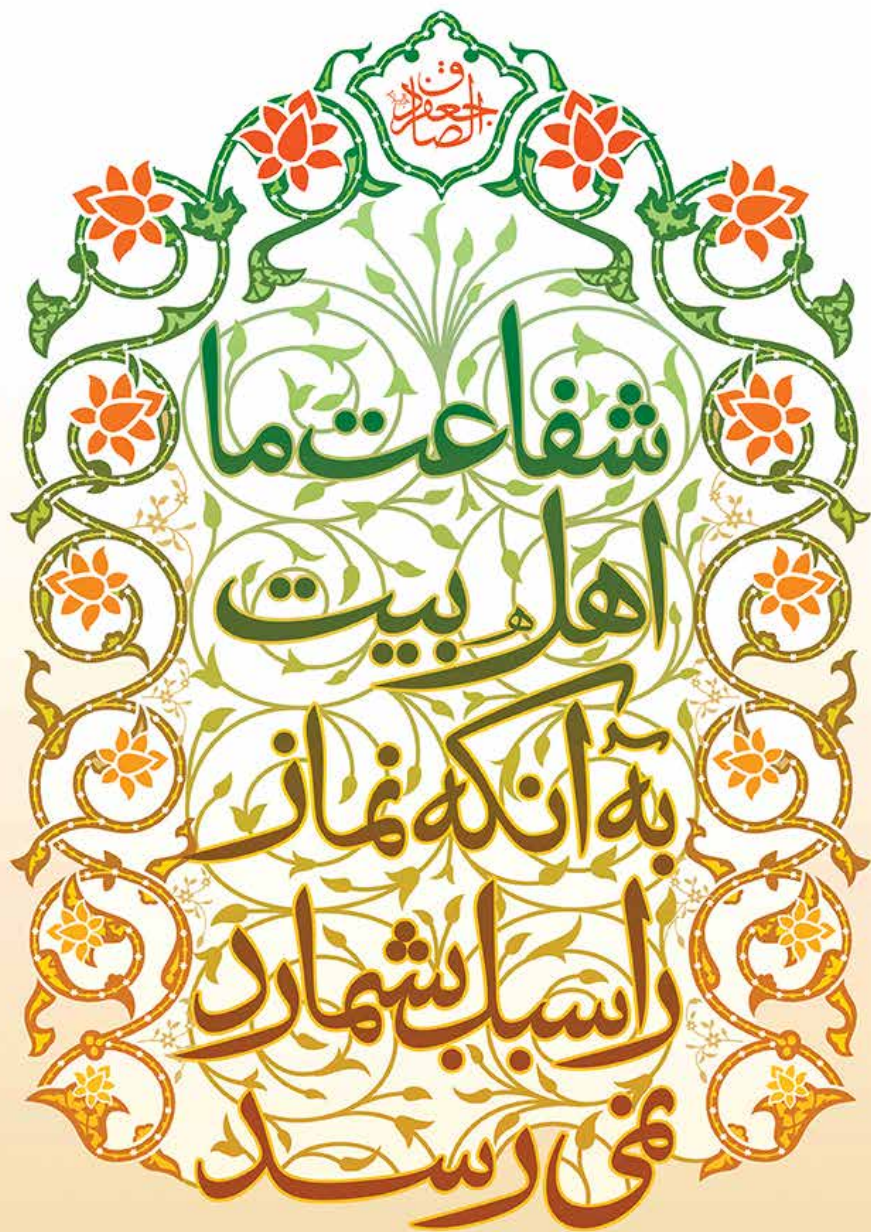 جعفر الصادق
شفاعت ما
اهل بیت
به آنکه نماز
را سبک بشمارد
نمی رسد